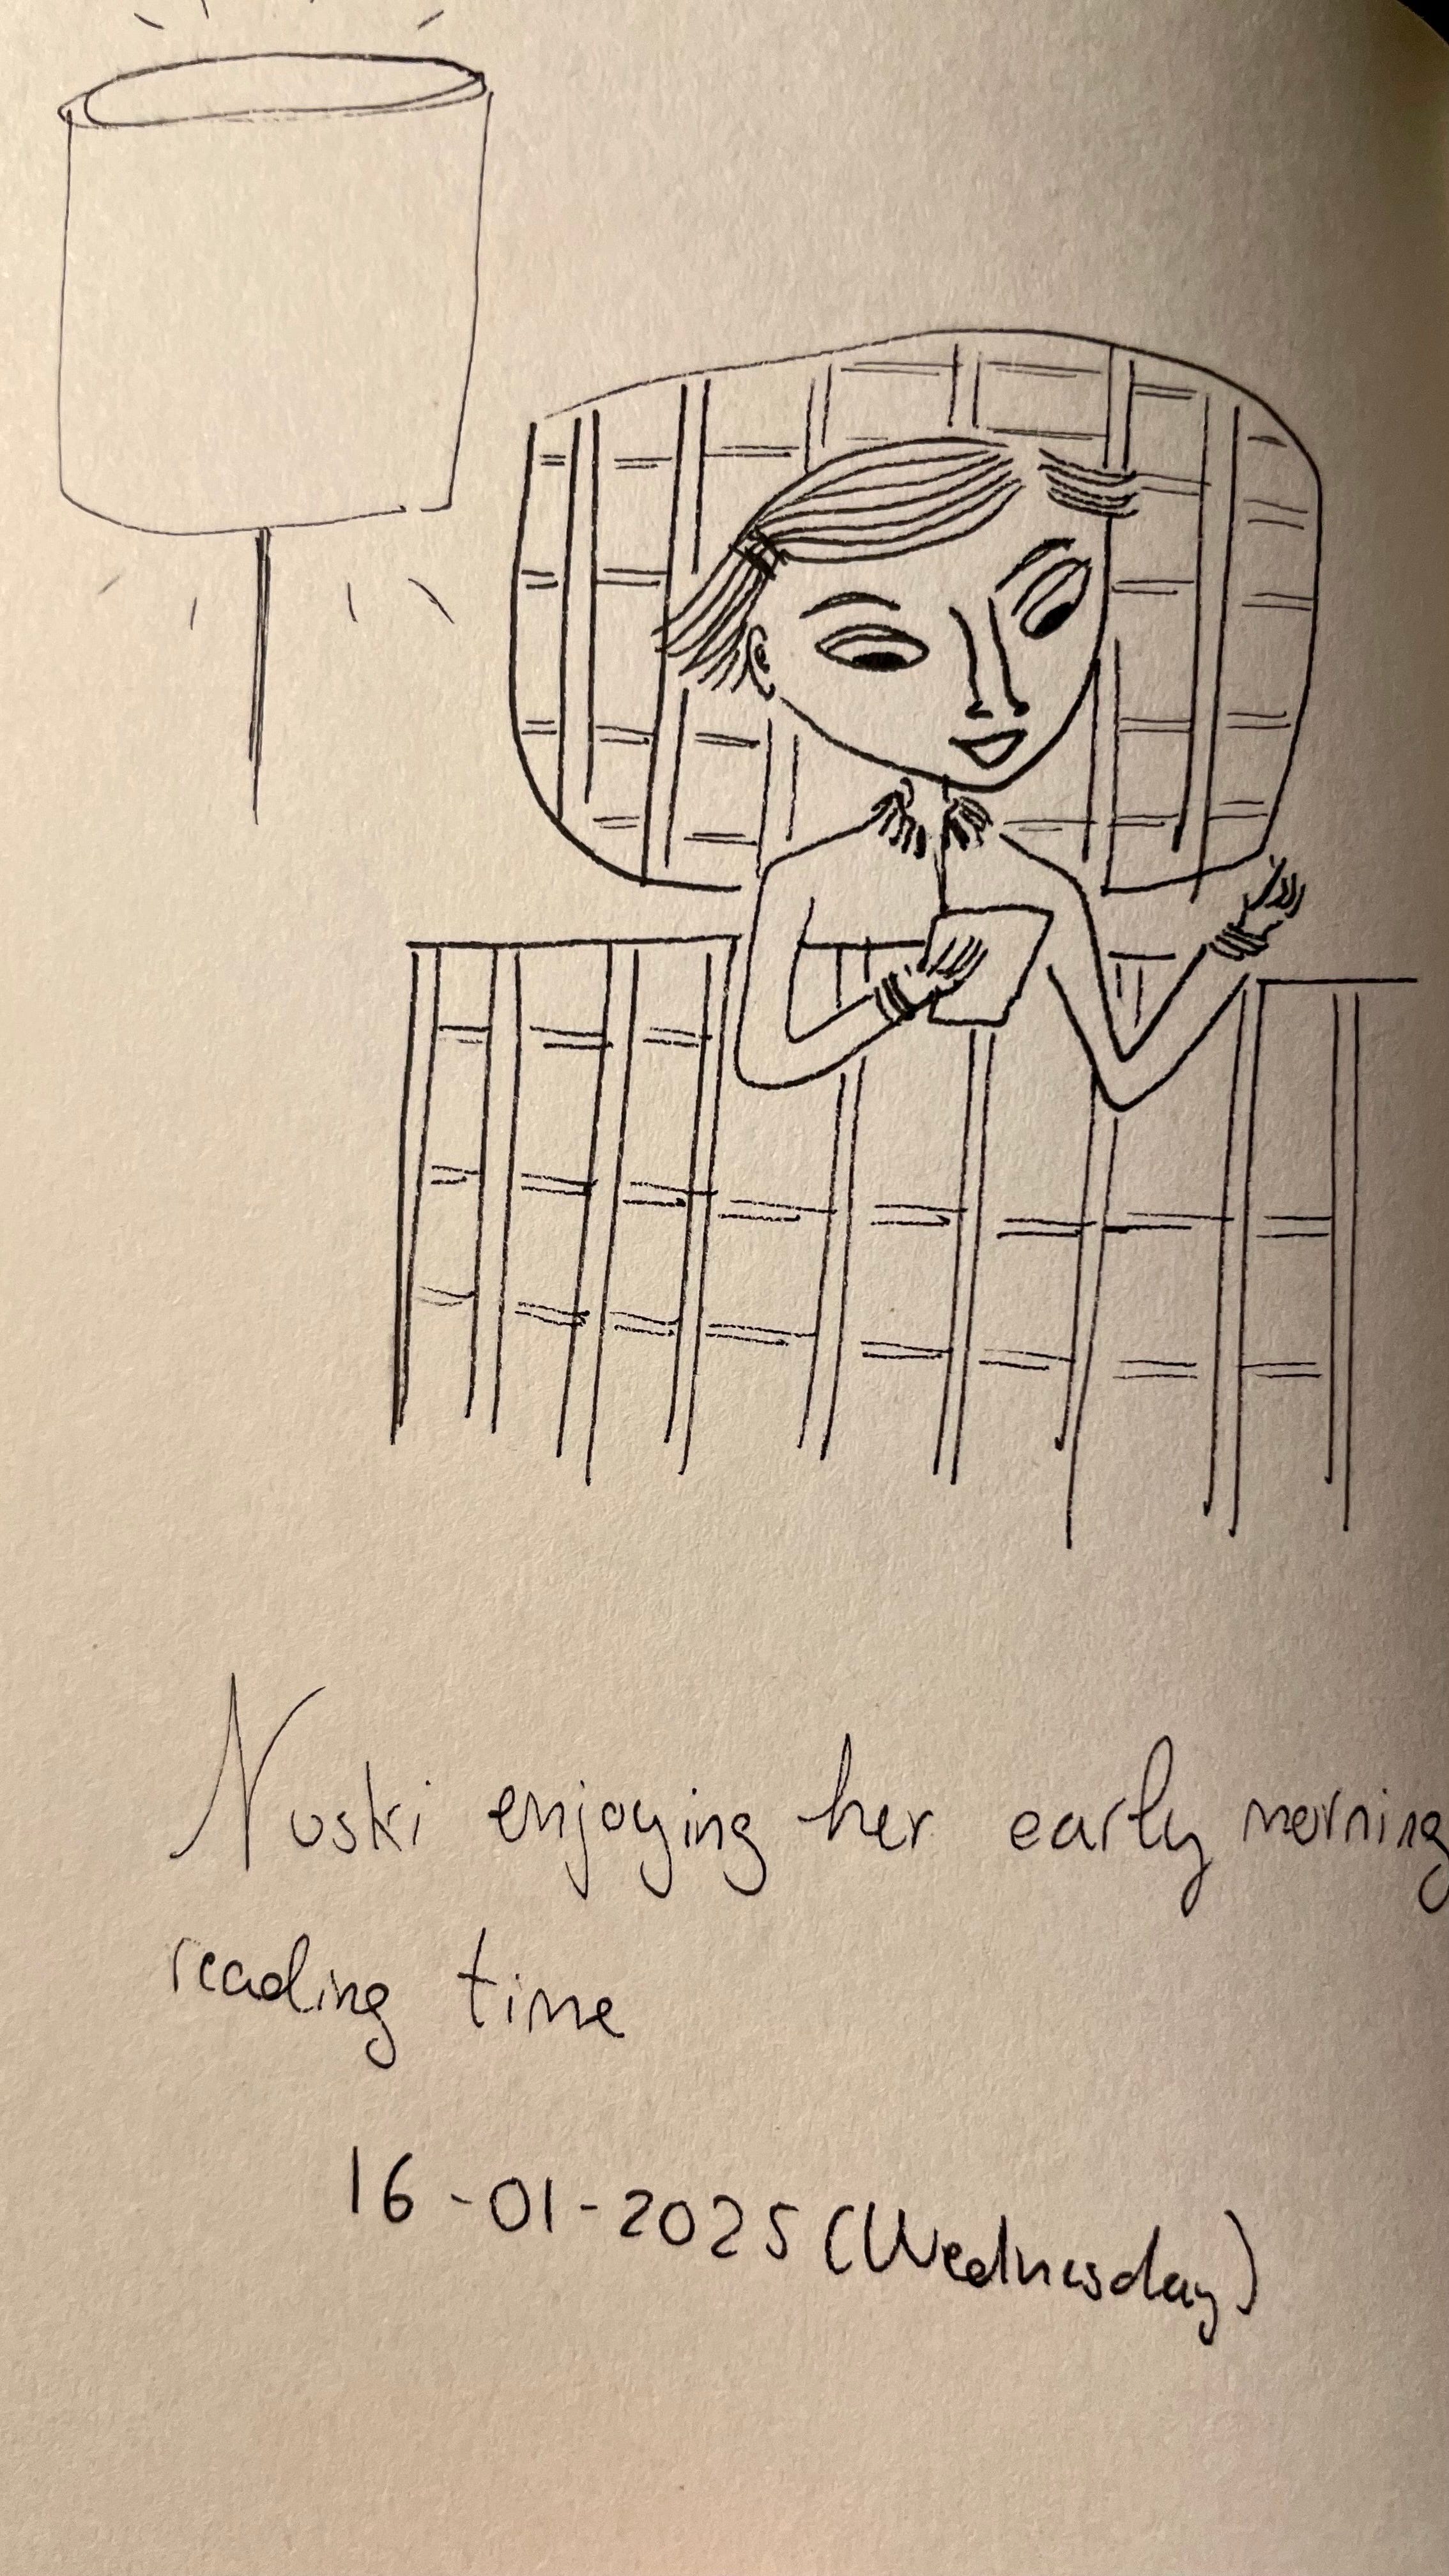 Nuski enjoying her early morning
reading time
16-01-2025 (Wednesday)